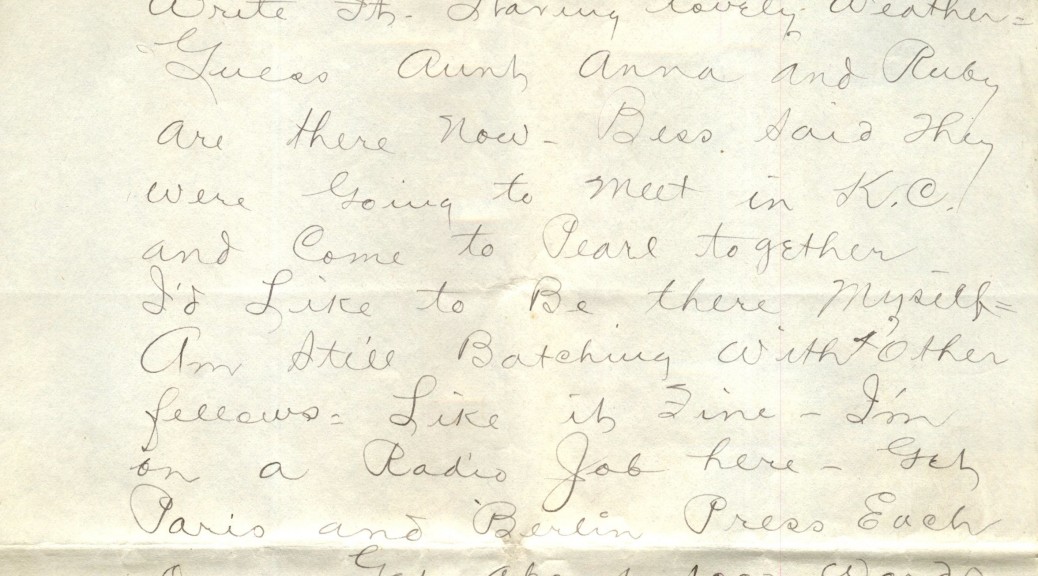 Write It- Having lovely Weather=
Guess Aunt Anna and Ruby
Are there Now- Bess. Said They
were Going to Meet in K.C.
and Come to Pearl together
I'd Like to Be there Myself=
Am Still Batching With 4 Other
fellows= Like it Fine - I'm
on a Radio Job here - Get
Paris and Berlin Press Each